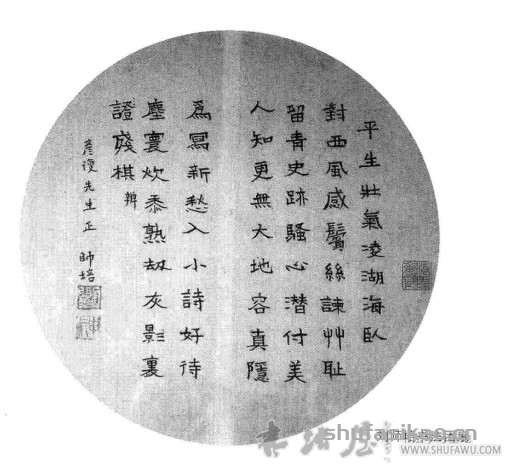 平生壯氣凌湖海臥
對西風感鬢絲諫艸耻
留青史跡騷心潛付美
人知更無大地容真隱
爲寫新愁入小詩好待
塵寰炊黍熟劫灰影裏
證殘棋 辨
彥復先生正 師培
WWW.SHUFAWU.COM